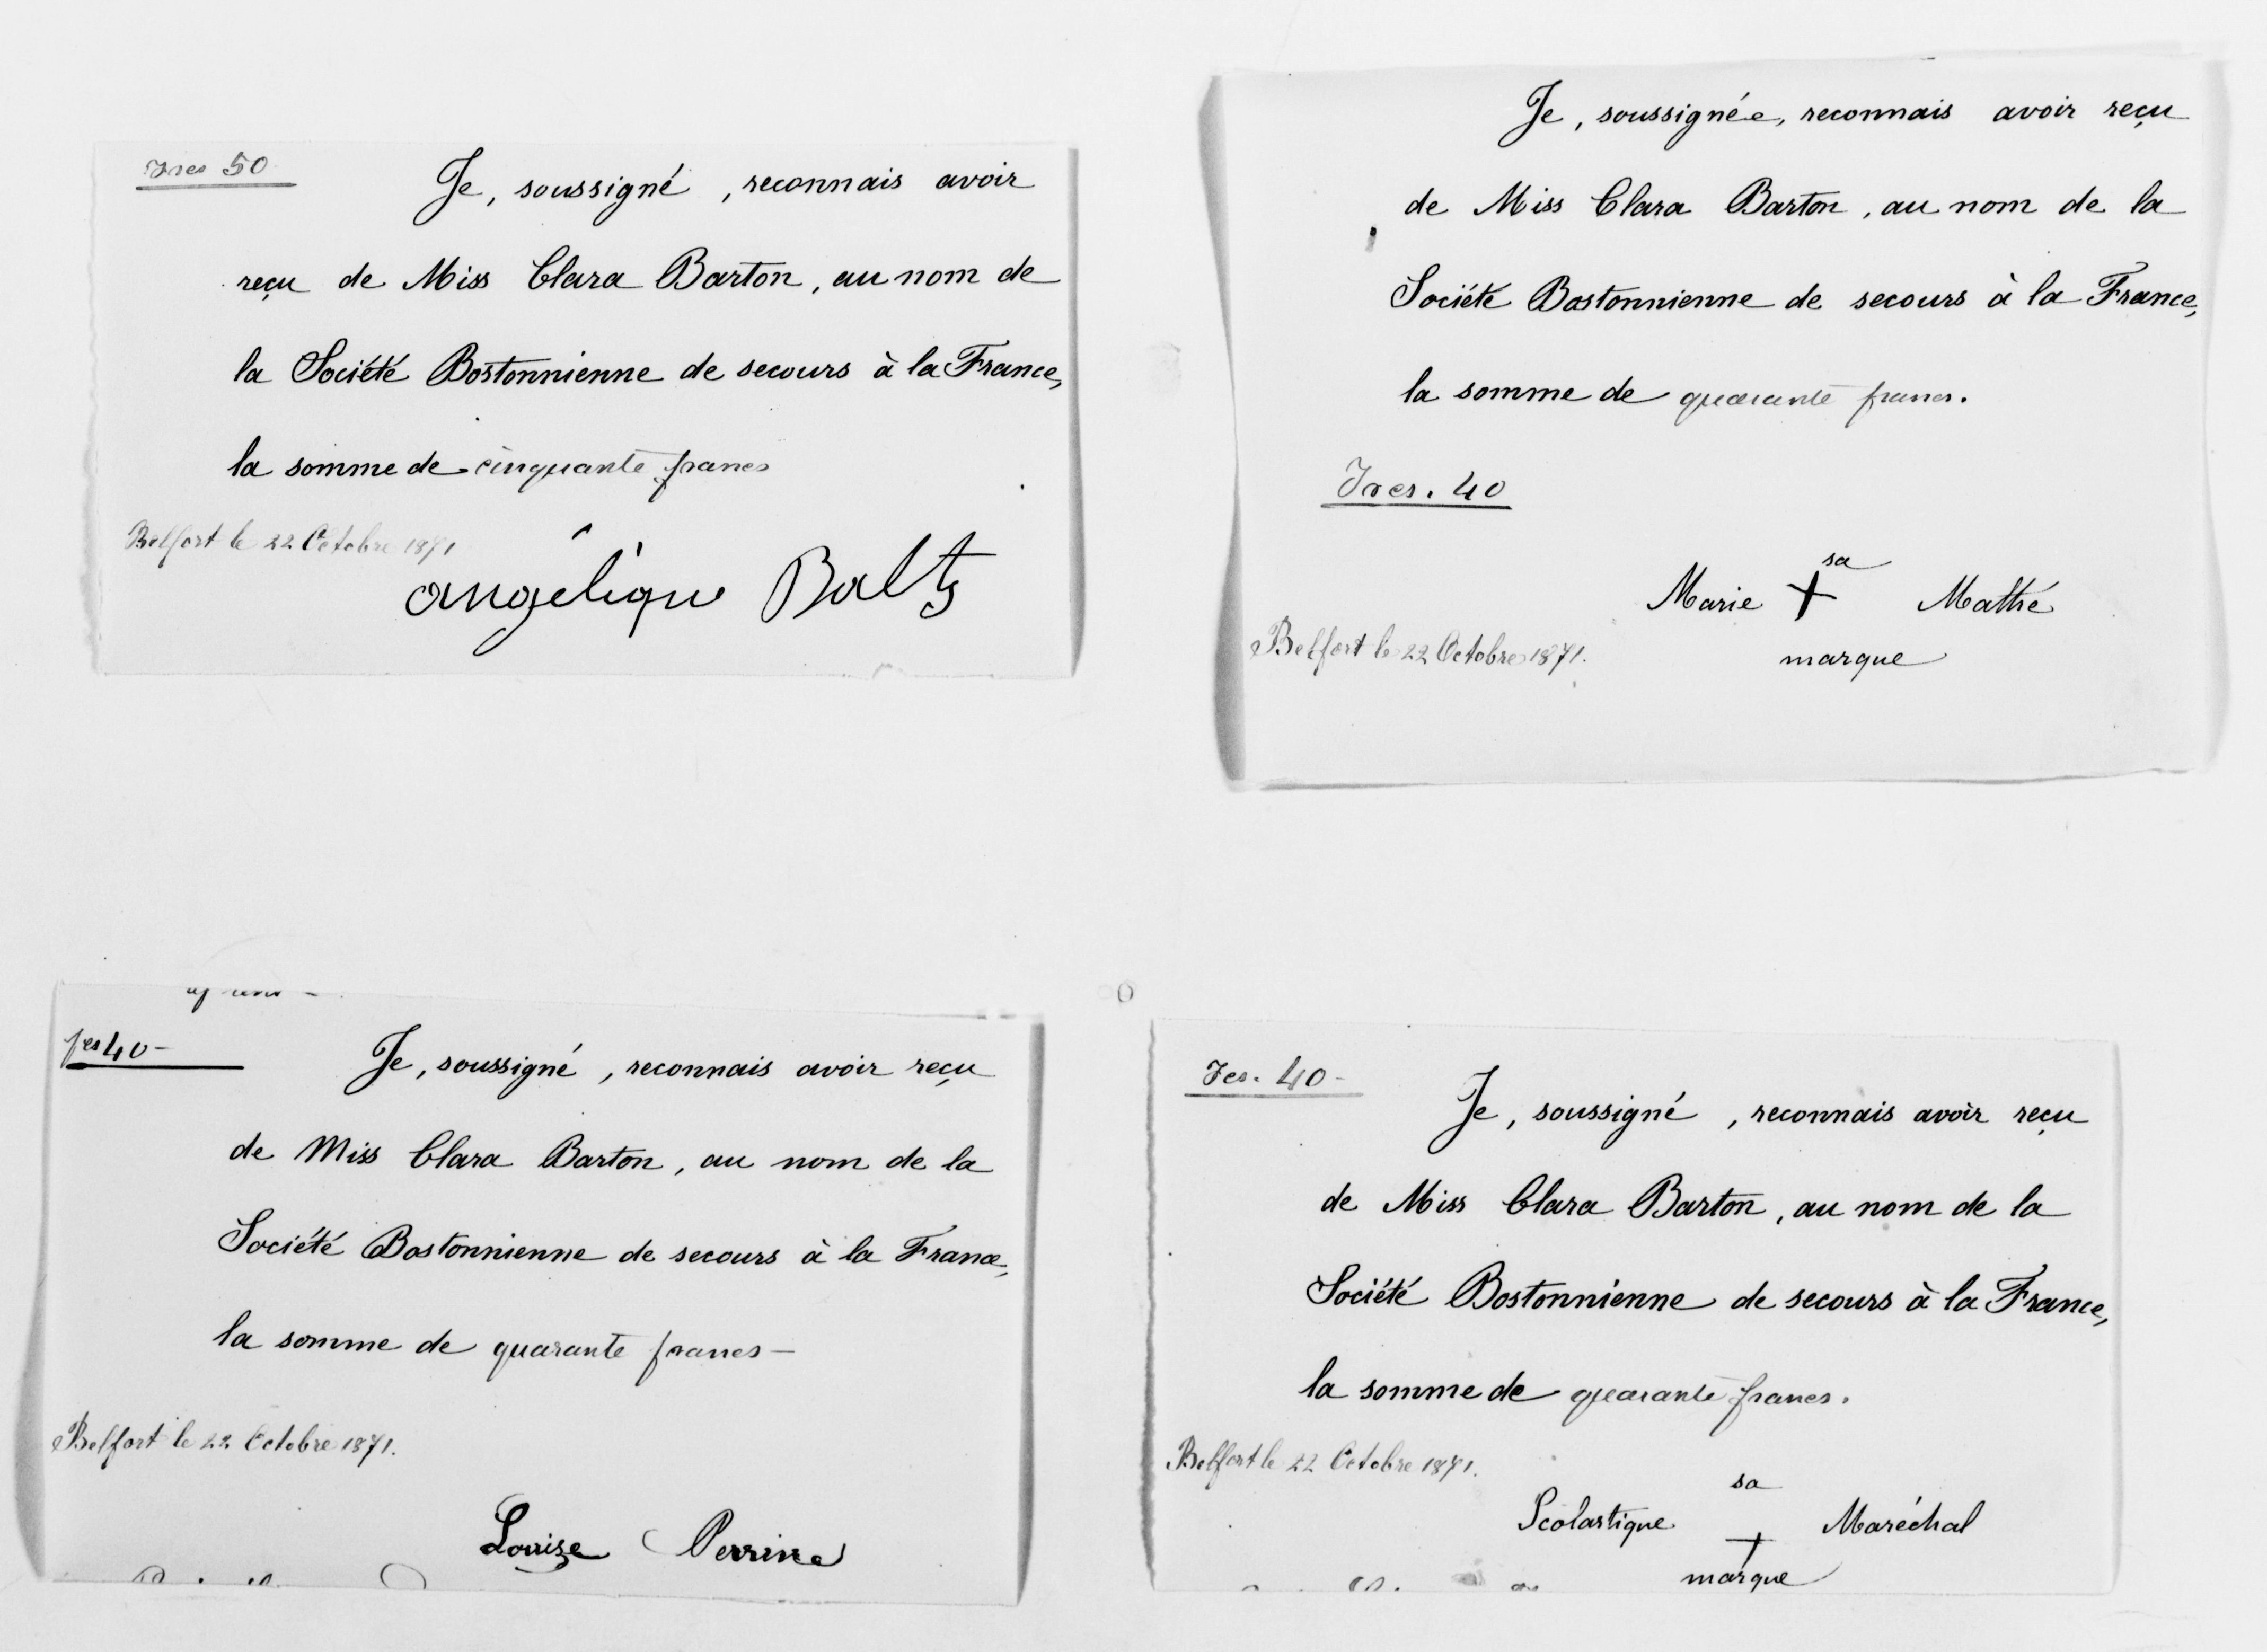 Frcs 50
Je, soussigné, reconnais avoir
reçu de Miss Clara Barton, au nom de
la Société Bostonnienne de secours à la France,
la somme de cinquante francs
Belfort le 22 Octobre 1871
angelique Baltz
Je, soussignée, reconnais avoir reçu
de Miss Clara Barton, au nom de la
Société Bostonnienne de secours à la France,
la somme de quarante francs.
Frcs. 40
sa
Marie + Mathé
marque
Belfort le 22 Octobre 1871.
fcs 40-
Je, soussigné, reconnais avoir reçu
de Miss Clara Barton, au nom de la
Société Bostonnienne de secours à la France,
la somme de quarante francs—
Belfort le 22 Octobre 1871.
Louise Perrine
Fcs. 40-
Je, soussigné, reconnais avoir reçu
de Miss Clara Barton, au nom de la
Société Bostonnienne de secours à la France,
la somme de quarante francs.
Belfort le 22 Octobre 1871.
sa
Scolastique + Maréchal
marque